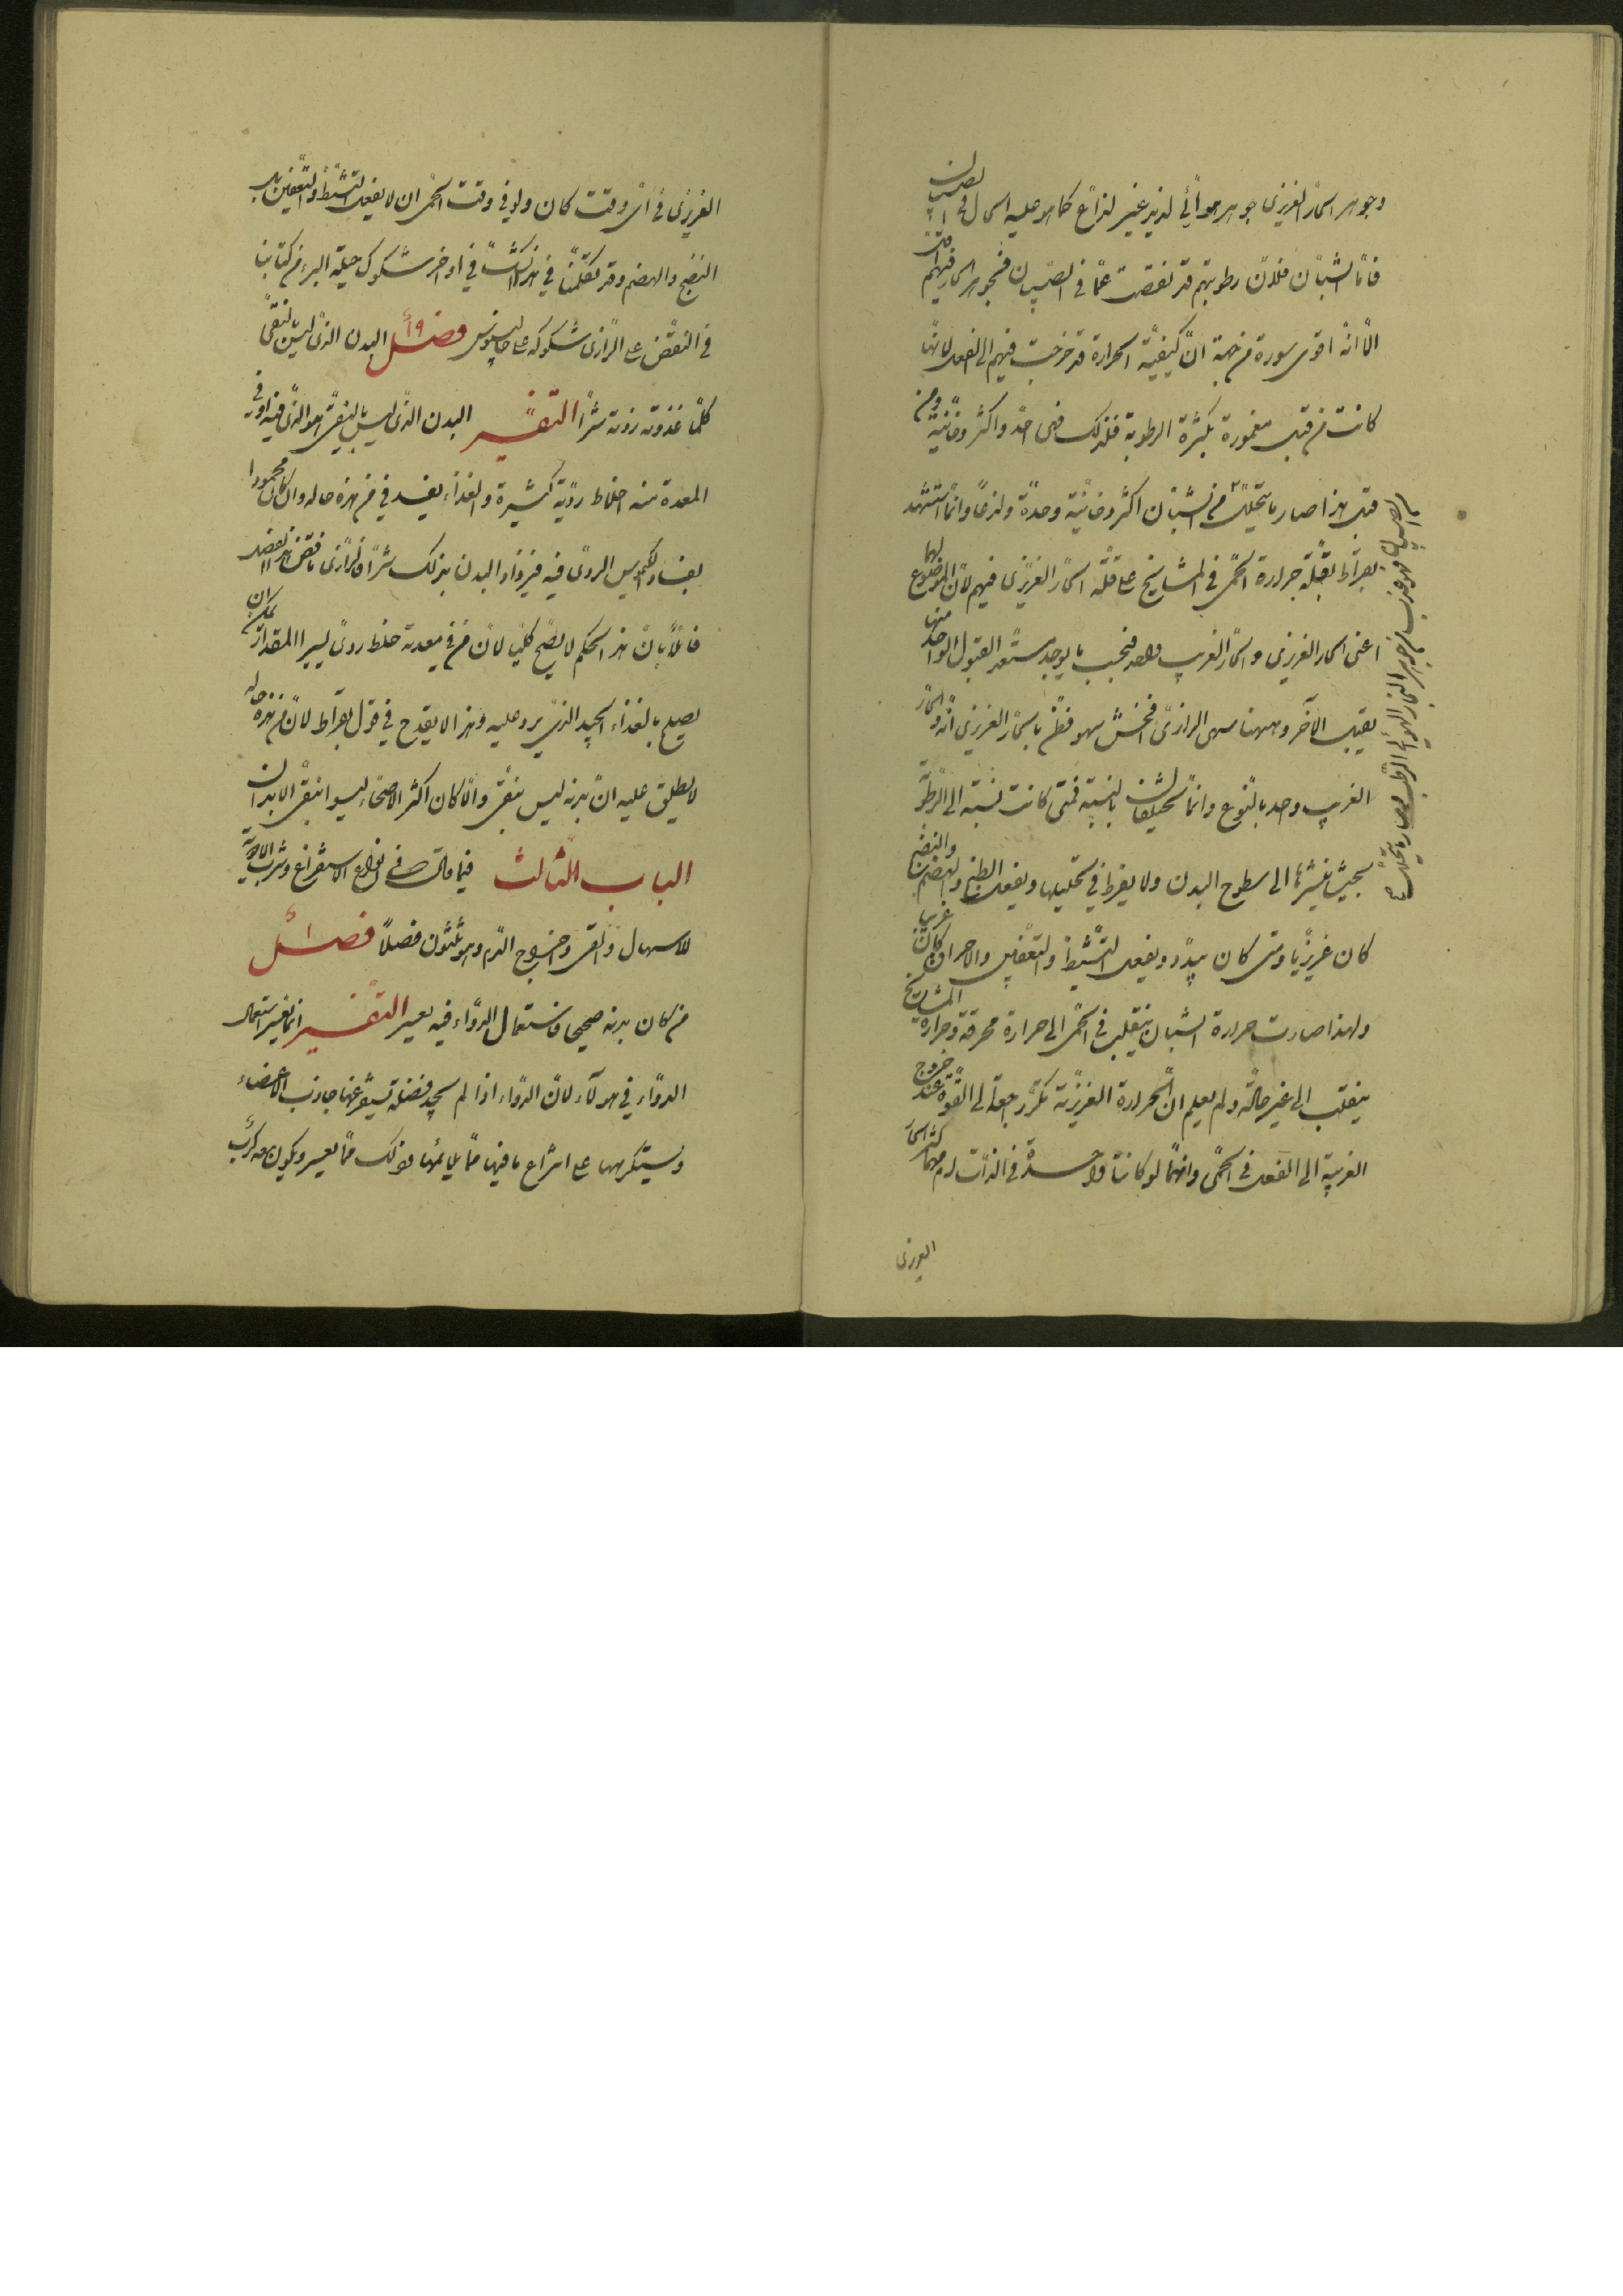 وجوهر الحار الغريزي جوهر هوائي لذيذ غير لذاع كما هو عليه الحال في الصبيان
فاما الشبان فلان رطوبتهم قد نقصت عما في الصبيان فجوهر الحار فيهم اقل
الا انه اقوى سورة من جهة ان كيفية الحرارة قد خرجت فيهم الى الفعل لانها
كانت من قبل مغمورة بكثرة الرطوبة فلذلك هي احد واكثر دخانية ومن
قبل هذا صار ما يتحلل من الشبان اكثر دخانية وحدة ولذعا وانما استشهد
بقراط بقلة حرارة الحمى في المشايخ على قلة الحار الغريزي فيهم لان الموضوع لهما
اعني الحار الغريزي والحار الغريب واحد فبحسب ما يوجد يستعد لقبول الواحد منهما
يقبل الآخر وههنا سهى الرازي افحش سهو فظن بالحار الغريزي انه والحار
الغريب واحد بالنوع وانما يختلفان بالنسبة فمتى كانت نسبته الى الرطوبة
بحيث ينشرها الى سطوح البدن ولا يفرط في تحليلها ويفعل الطبخ والهضم والنضج
كان غريزيا ومتى كان يبدد ويفعل التشيط والتعفين والاحراق كان غريبا
ولهذا صارت حرارة الشبان ينقلب في الحمى الى حرارة محرقة وحرارة المشايخ
ينقلب الى غير حالته ولم يعلم ان الحرارة الغريزية تكر راجعة الى القوة عند خروج
الغريبة الى الفعل في الحمى وانهما لو كانتا واحدة في الذات لزم مهما كثر الحار
الغريزي
الغريزي في اي وقت كان ولو في وقت الحمى ان لا يفعل التشيط والتعفين بل
النضج والهضم وقد تكلمنا في هذا الشك في اواخر شكوك حيلة البرء من كتابنا
في النقض على الرازي شكوكه على جالينوس فصل ١٩ البدن الذي ليس بالنقي
كلما غذوته زدته شرا التفسير البدن الذي ليس بالنقي هو الذي فيه او في
المعدة منه اخلاط ردية كثيرة والغذاء يفسد في من هذه حاله وان كان محمودا
بفساد الكيموس الردي فيه فيزداد البدن بذلك شرا والرازي ناقض هذا الفصل
قائلا بان هذا الحكم لا يصح كليا لان من في معدته خلط ردي يسير المقدار يمكن ان
يصلح بالغذاء الجيد الذي يرد عليه وهذا لا يقدح في قول بقراط لان من هذه حاله
لا يطلق عليه ان بدنه ليس بنقي والا كان اكثر الاصحاء ليسوا بنقي الابدان
الباب الثالث فيما قاله في انواع الاستفراغ وشرب الادوية
للاسهال والقي وخروج الدم وهو ثلثون فصلا فصل ١
من كان بدنه صحيحا فاستعمال الدواء فيه يعسر التفسير انما يعسر استعمال
الدواء في هولاء لان الدواء اذا لم يجد فضلة يستفرغها جاذب الاعضاء
ويستكرهها على انتزاع ما فيها مما يلائمها وذلك مما يعسر ويكون معه كرب